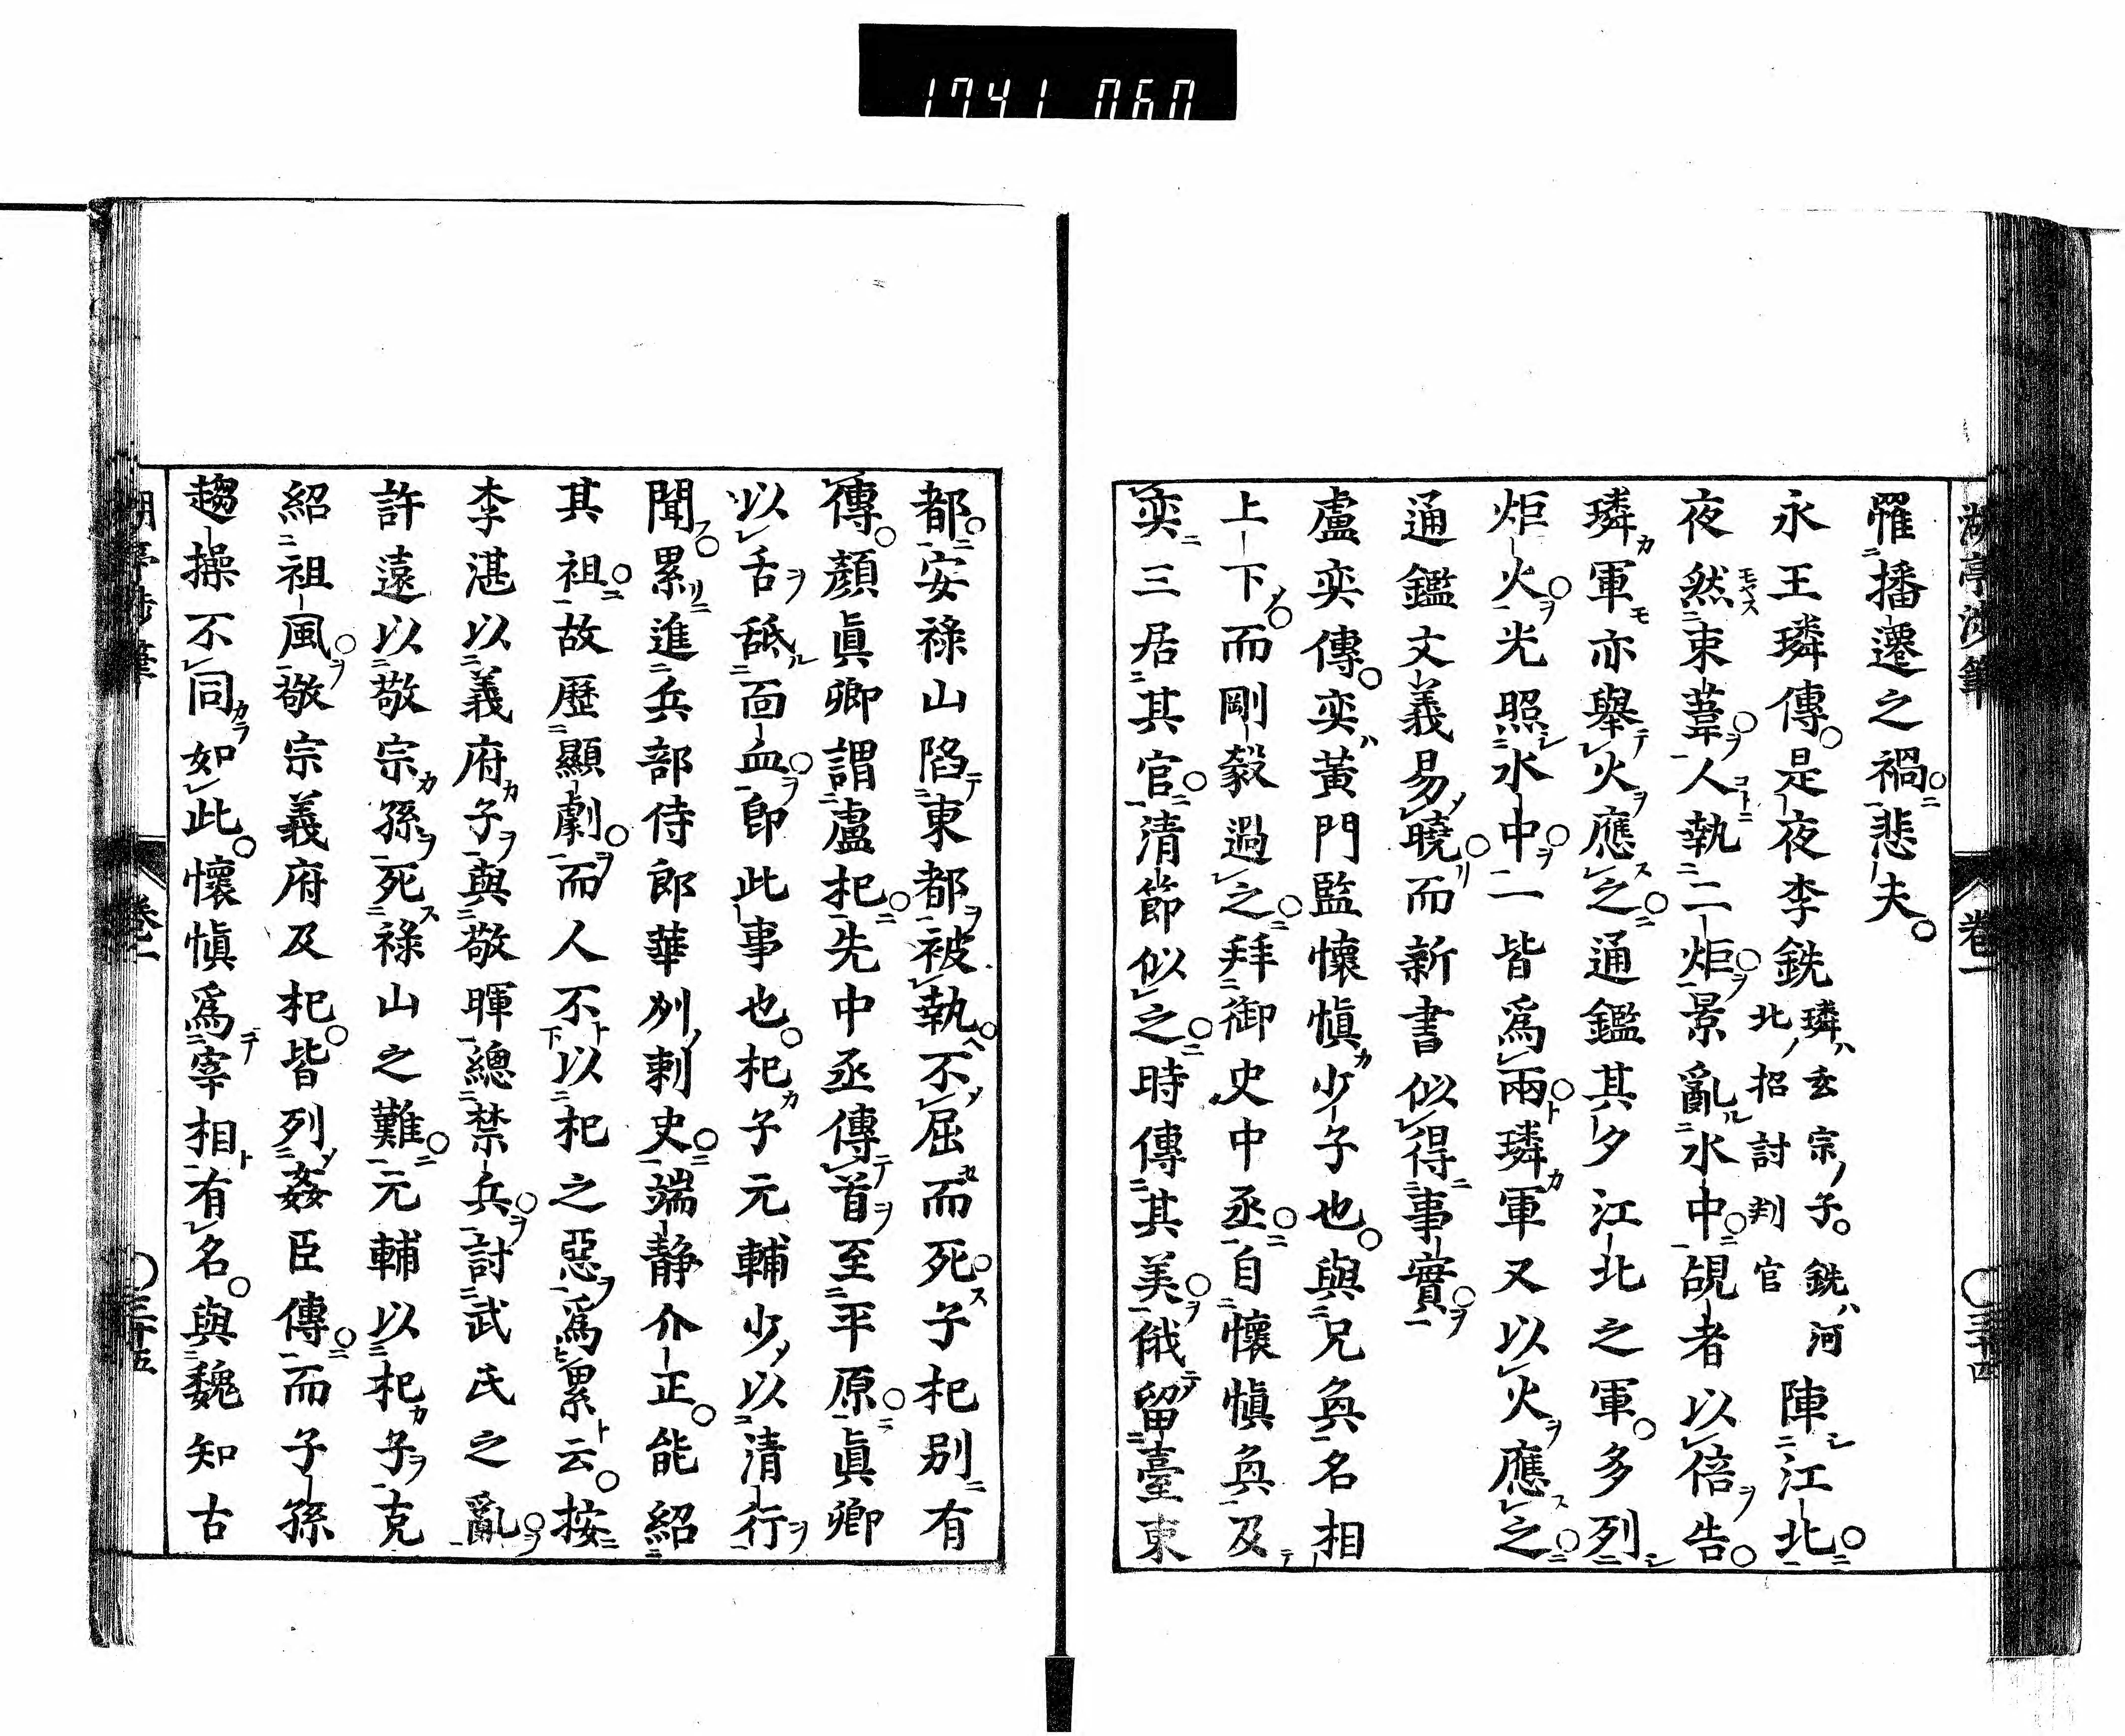 1741 060
湖亭涉筆 卷一 ○三十四
罹播遷之禍悲夫
永王璘傳是夜李銑璘ハ玄宗ノ子銑ハ河北ノ招討判官陣江北
夜然束葦人執二炬景亂水中覘者以倍告
璘軍亦舉火應之通鑑其夕江北之軍多列
炬火光照水中一皆爲兩璘軍又以火應之
通鑑文義易曉而新書似得事實
盧奕傳奕黃門監懷愼少子也與兄奐名相
上下而剛毅過之拜御史中丞自懷愼奐及
奕三居其官清節似之時傳其美俄留臺東
都安祿山陷東都被執不屈而死子杞別有
傳顏眞卿謂盧杞先中丞傳首至平原眞卿
以舌舐面血即此事也杞子元輔少以清行
聞累進兵部侍郎華州刺史端靜介正能紹
其祖故歷顯劇而人不以杞之惡爲累云按
李湛以義府子與敬暉總禁兵討武氏之亂
許遠以敬宗孫死祿山之難元輔以杞子克
紹祖風敬宗義府及杞皆列姦臣傳而子孫
趨操不同如此懷愼爲宰相有名與魏知古
湖亭涉筆 卷一 ○三十五